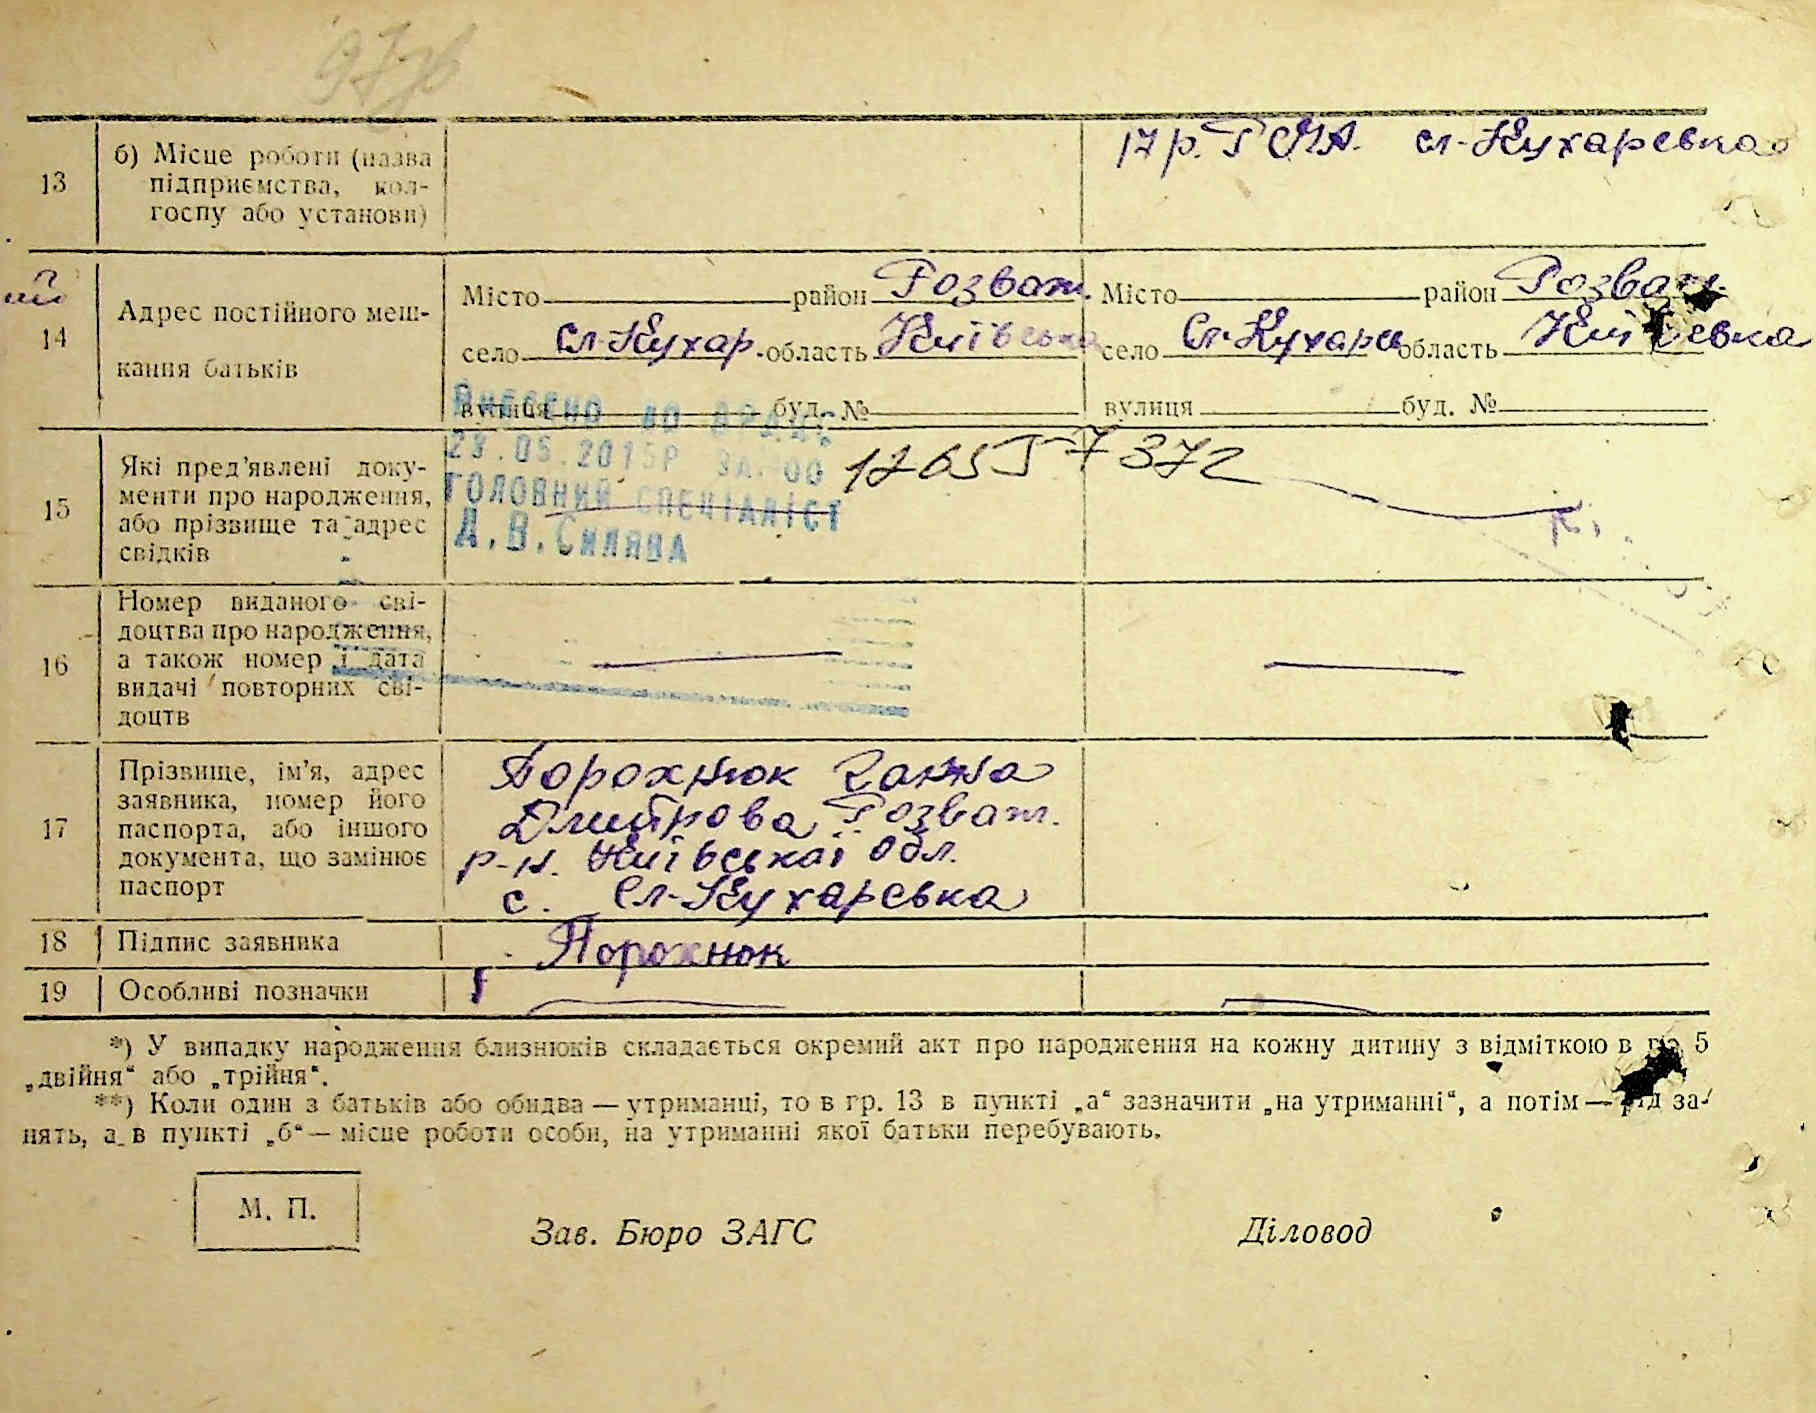 13
б) Місце роботи (назва
підприємства, кол-
госпу або установи)
сл-Кухаревка
14
Адрес постійного меш-
кання батьків
Місто район Розваж. Місто район Розваж.
село Сл-Кухар. область Київська село Сл-Кухарев область Київська
вулиця буд. № вулиця буд. №
15
Які пред’явлені доку-
менти про народження,
або прізвище та адрес
свідків
Внесено до ДРАЦС
29.05.2015р за № 00 17655 7372
Головний спеціаліст
А.В. Силява
16
Номер виданого сві-
доцтва про народження,
а також номер і дата
видачі повторних сві-
доцтв
17
Прізвище, ім’я, адрес
заявника, номер його
паспорта, або іншого
документа, що замінює
паспорт
Порохнюк Ганна
Дмитрова Розваж.
р-н. Київської обл.
с. Сл-Кухаревка
18 Підпис заявника Порохнюк
19 Особливі позначки
*) У випадку народження близнюків складається окремий акт про народження на кожну дитину з відміткою в гр. 5
„двійня“ або „трійня“.
**) Коли один з батьків або обидва — утриманці, то в гр. 13 в пункті „а“ зазначити „на утриманні“, а потім — рід за-
нять, а в пункті „б“ — місце роботи особи, на утриманні якої батьки перебувають.
М. П.
Зав. Бюро ЗАГС Діловод